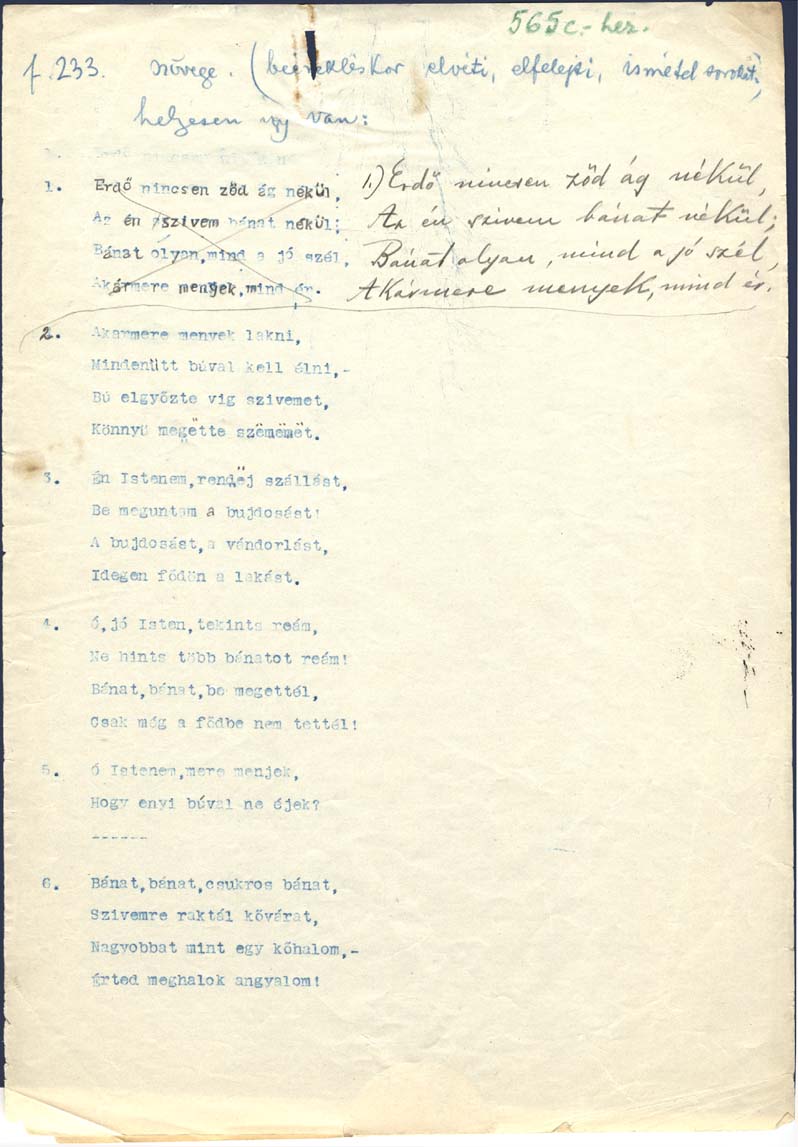 565c.-hez.
f.233. szövege. (beénekléskor elvéti, elfelejti, ismétel sorokat.)
helyesen így van:
1. Erdő nincsen zöd ág nékül,
Az én szivem bánat nékül;
Bánat olyan,mind a jó szél,
Akármere menyek,mind ér.
1.) Erdő nincsen zöd ág nékül,
Az én szivem bánat nékül;
Bánat olyan, mind a jó szél,
Akármere menyek, mind ér.
2. Akarmere menyek lakni,
Mindenütt búval kell élni,-
Bú elgyőzte vig szivemet,
Könnyű megëtte szëmëmët.
3. Én Istenem,rendëj szállást,
Be meguntam a bujdosást!
A bujdosást,a vándorlást,
Idegen födön a lakást.
4. Ó,jó Isten,tekints reám,
Ne hints több bánatot reám!
Bánat,bánat,be megettél,
Csak még a födbe nem tettél!
5. Ó Istenem,mere menjek,
Hogy enyi búval ne éjek?
------
6. Bánat,bánat,csukros bánat,
Szivemre raktál kővárat,
Nagyobbat mint egy kőhalom,-
Érted meghalok angyalom!